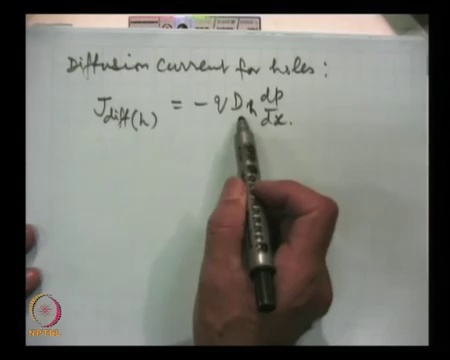 Diffusion Current for holes :
J_diff(h) = - q D_h dp/dx.
NPTEL